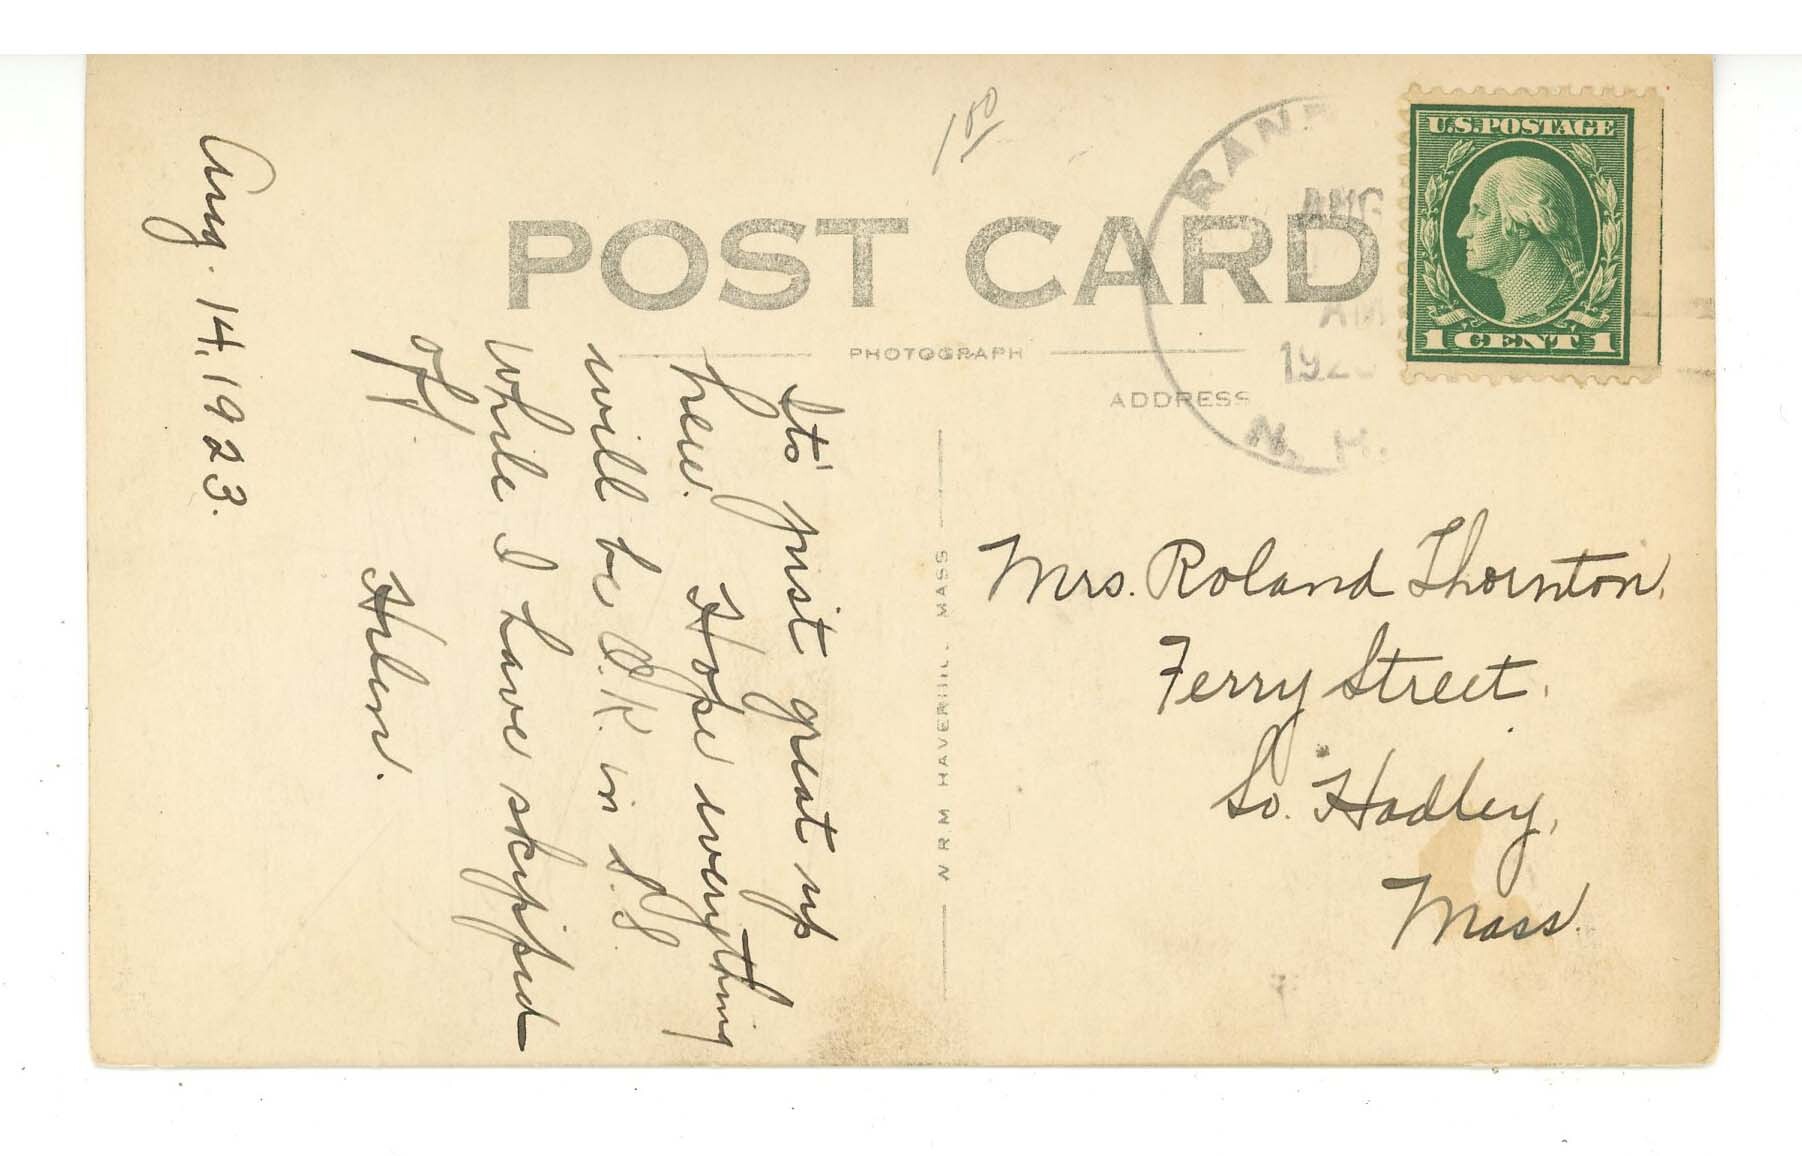 1 00
RAND
AUG
AM
192
N. H.
U.S. POSTAGE
1 CENT 1
POST CARD
PHOTOGRAPH
ADDRESS
Aug. 14, 1923.
Its' just great up
here. Hope everything
will be O.K. in S.S.
while I have skipped
off.
Helen.
N R M HAVERHILL MASS
Mrs. Roland Thornton.
Ferry Street.
So. Hadley,
Mass.